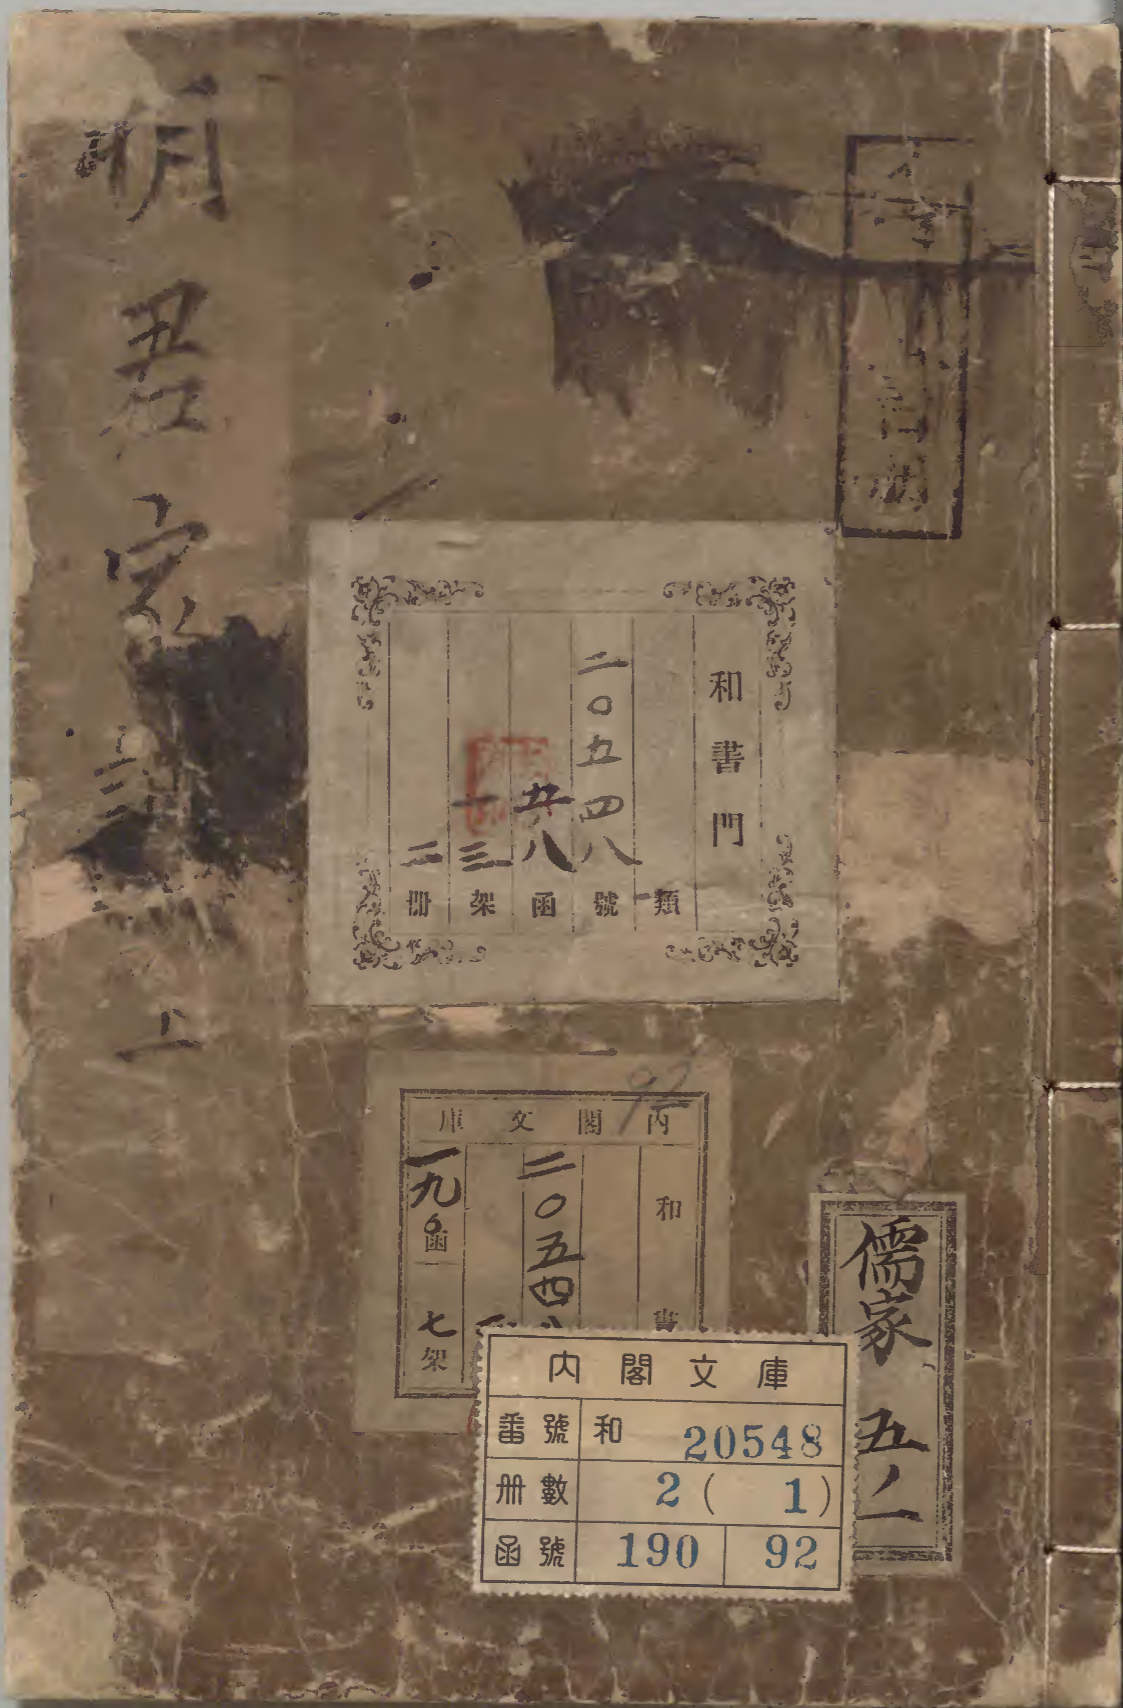 明君家訓 上
和書門
類
二〇五四八號
五八函
一三架
二冊
92
内閣文庫
和書
二〇五四八
一九〇函 七架
儒家 五ノ一
内閣文庫
番號 和 20548
冊數 2 ( 1 )
函號 190 92